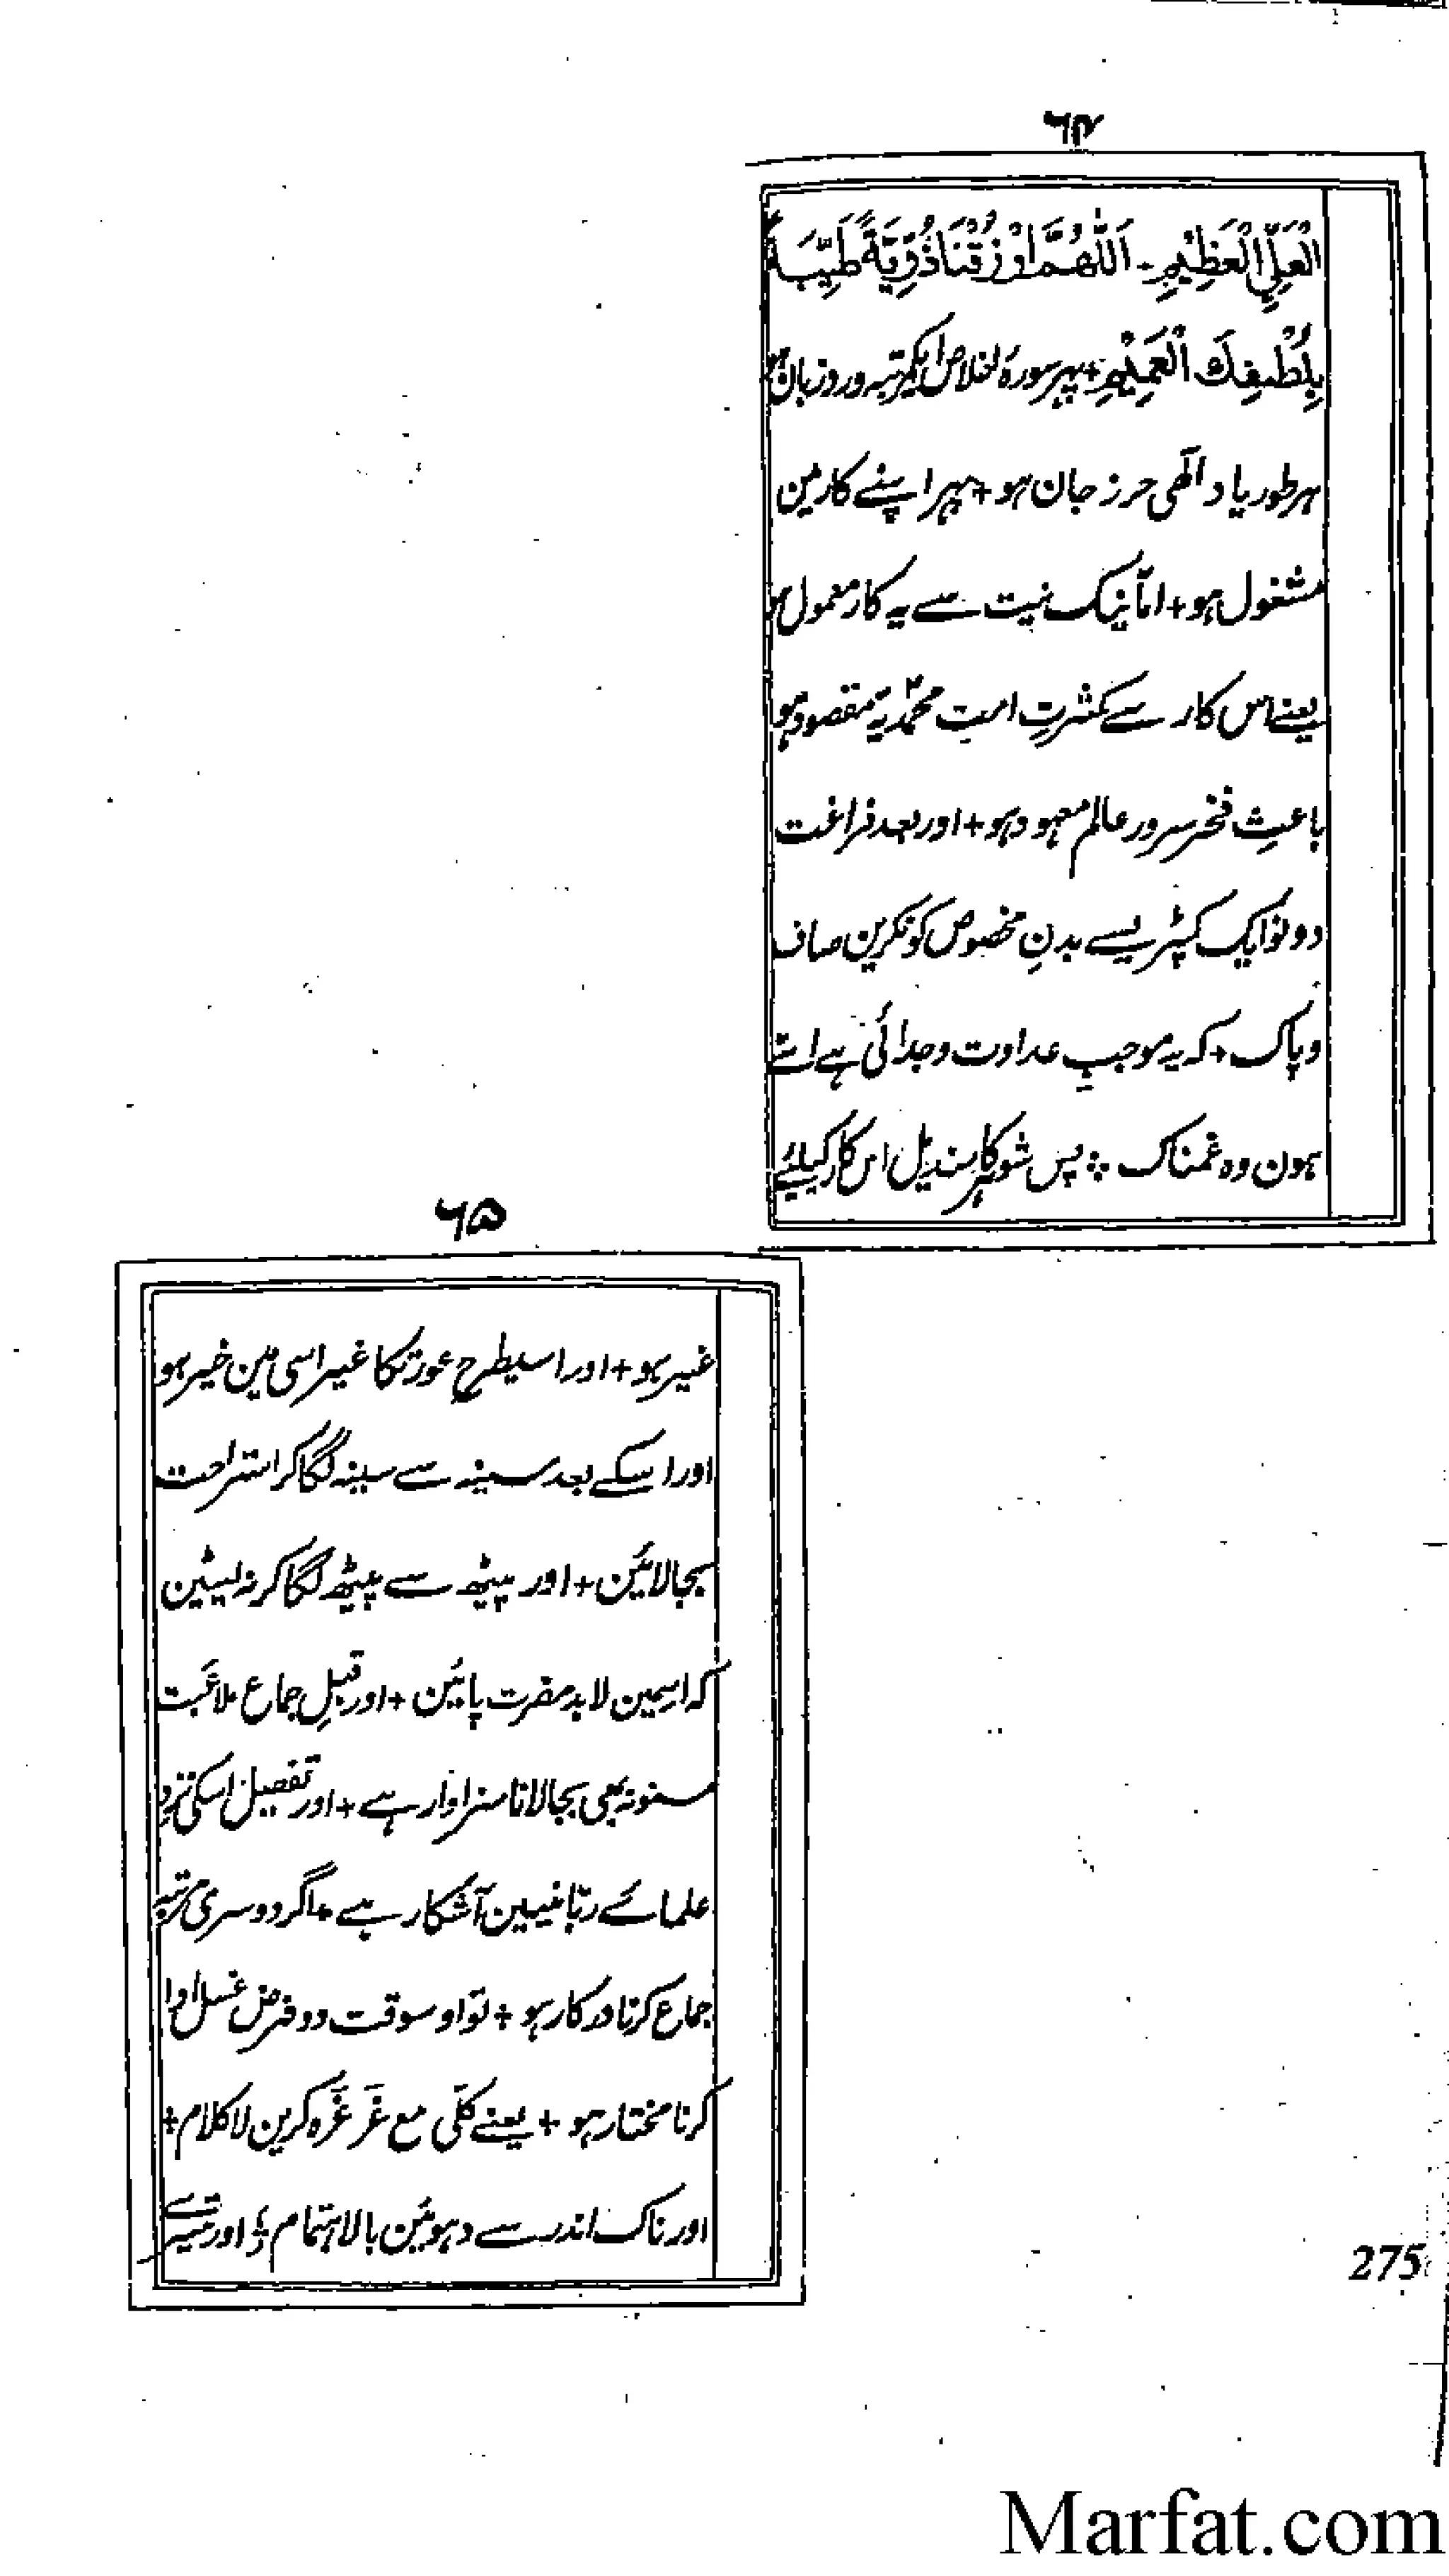 ۶۴
الْعَلِيِّ الْعَظِيْمِ۔ اَللّٰهُمَّ ارْزُقْنَا ذُرِّيَّةً طَيِّبَةً
بِلُطْفِكَ الْعَمِيْمِ + پہر سورۂ اخلاص ایکمرتبہ ورد زبان ہو
ہر طور یاد الٓھی حرز جان ہو + پہر اپنے کار مین
مشغول ہو + امّا نیک نیت سے یہ کار معمول ہو
یعنے اس کار سے کثرتِ امتِ محمدیہ مقصود ہو
باعثِ فخرِ سرور عالم معہود ہو + اور بعد فراغت
دونو ایک کپڑیسے بدنِ مخصوص کو نکرین صاف
و پاک + کہ یہ موجبِ عداوت و جدائی ہے اسے
ہون وہ غمناک + پس شوہر کا رندیل اس کار کیلئے
۶۵
غیر ہو + اور اسیطرح عورتکا غیر اسی مین خیر ہو
اور اسکے بعد سینہ سے سینہ لگاکر استراحت
بجا لائین + اور پیٹھ سے پیٹھ لگاکر نہ لیٹین
کہ اسمین لابد مضرت پائین + اور قبلِ جماع ملاعبت
مسنونہ بھی بجا لانا سزاوار ہے + اور تفصیل اسکی نزد
علمائے ربّانیین آشکار ہے + اگر دوسری مرتبہ
جماع کرنا درکار ہو + تو اوسوقت دو فرض غسل ادا
کرنا مختار ہو + یعنے کلّی مع غَرغَرہ کرین لاکلام +
اور ناک اندر سے دہوئین بالاہتمام + اور تیسرے
275
Marfat.com